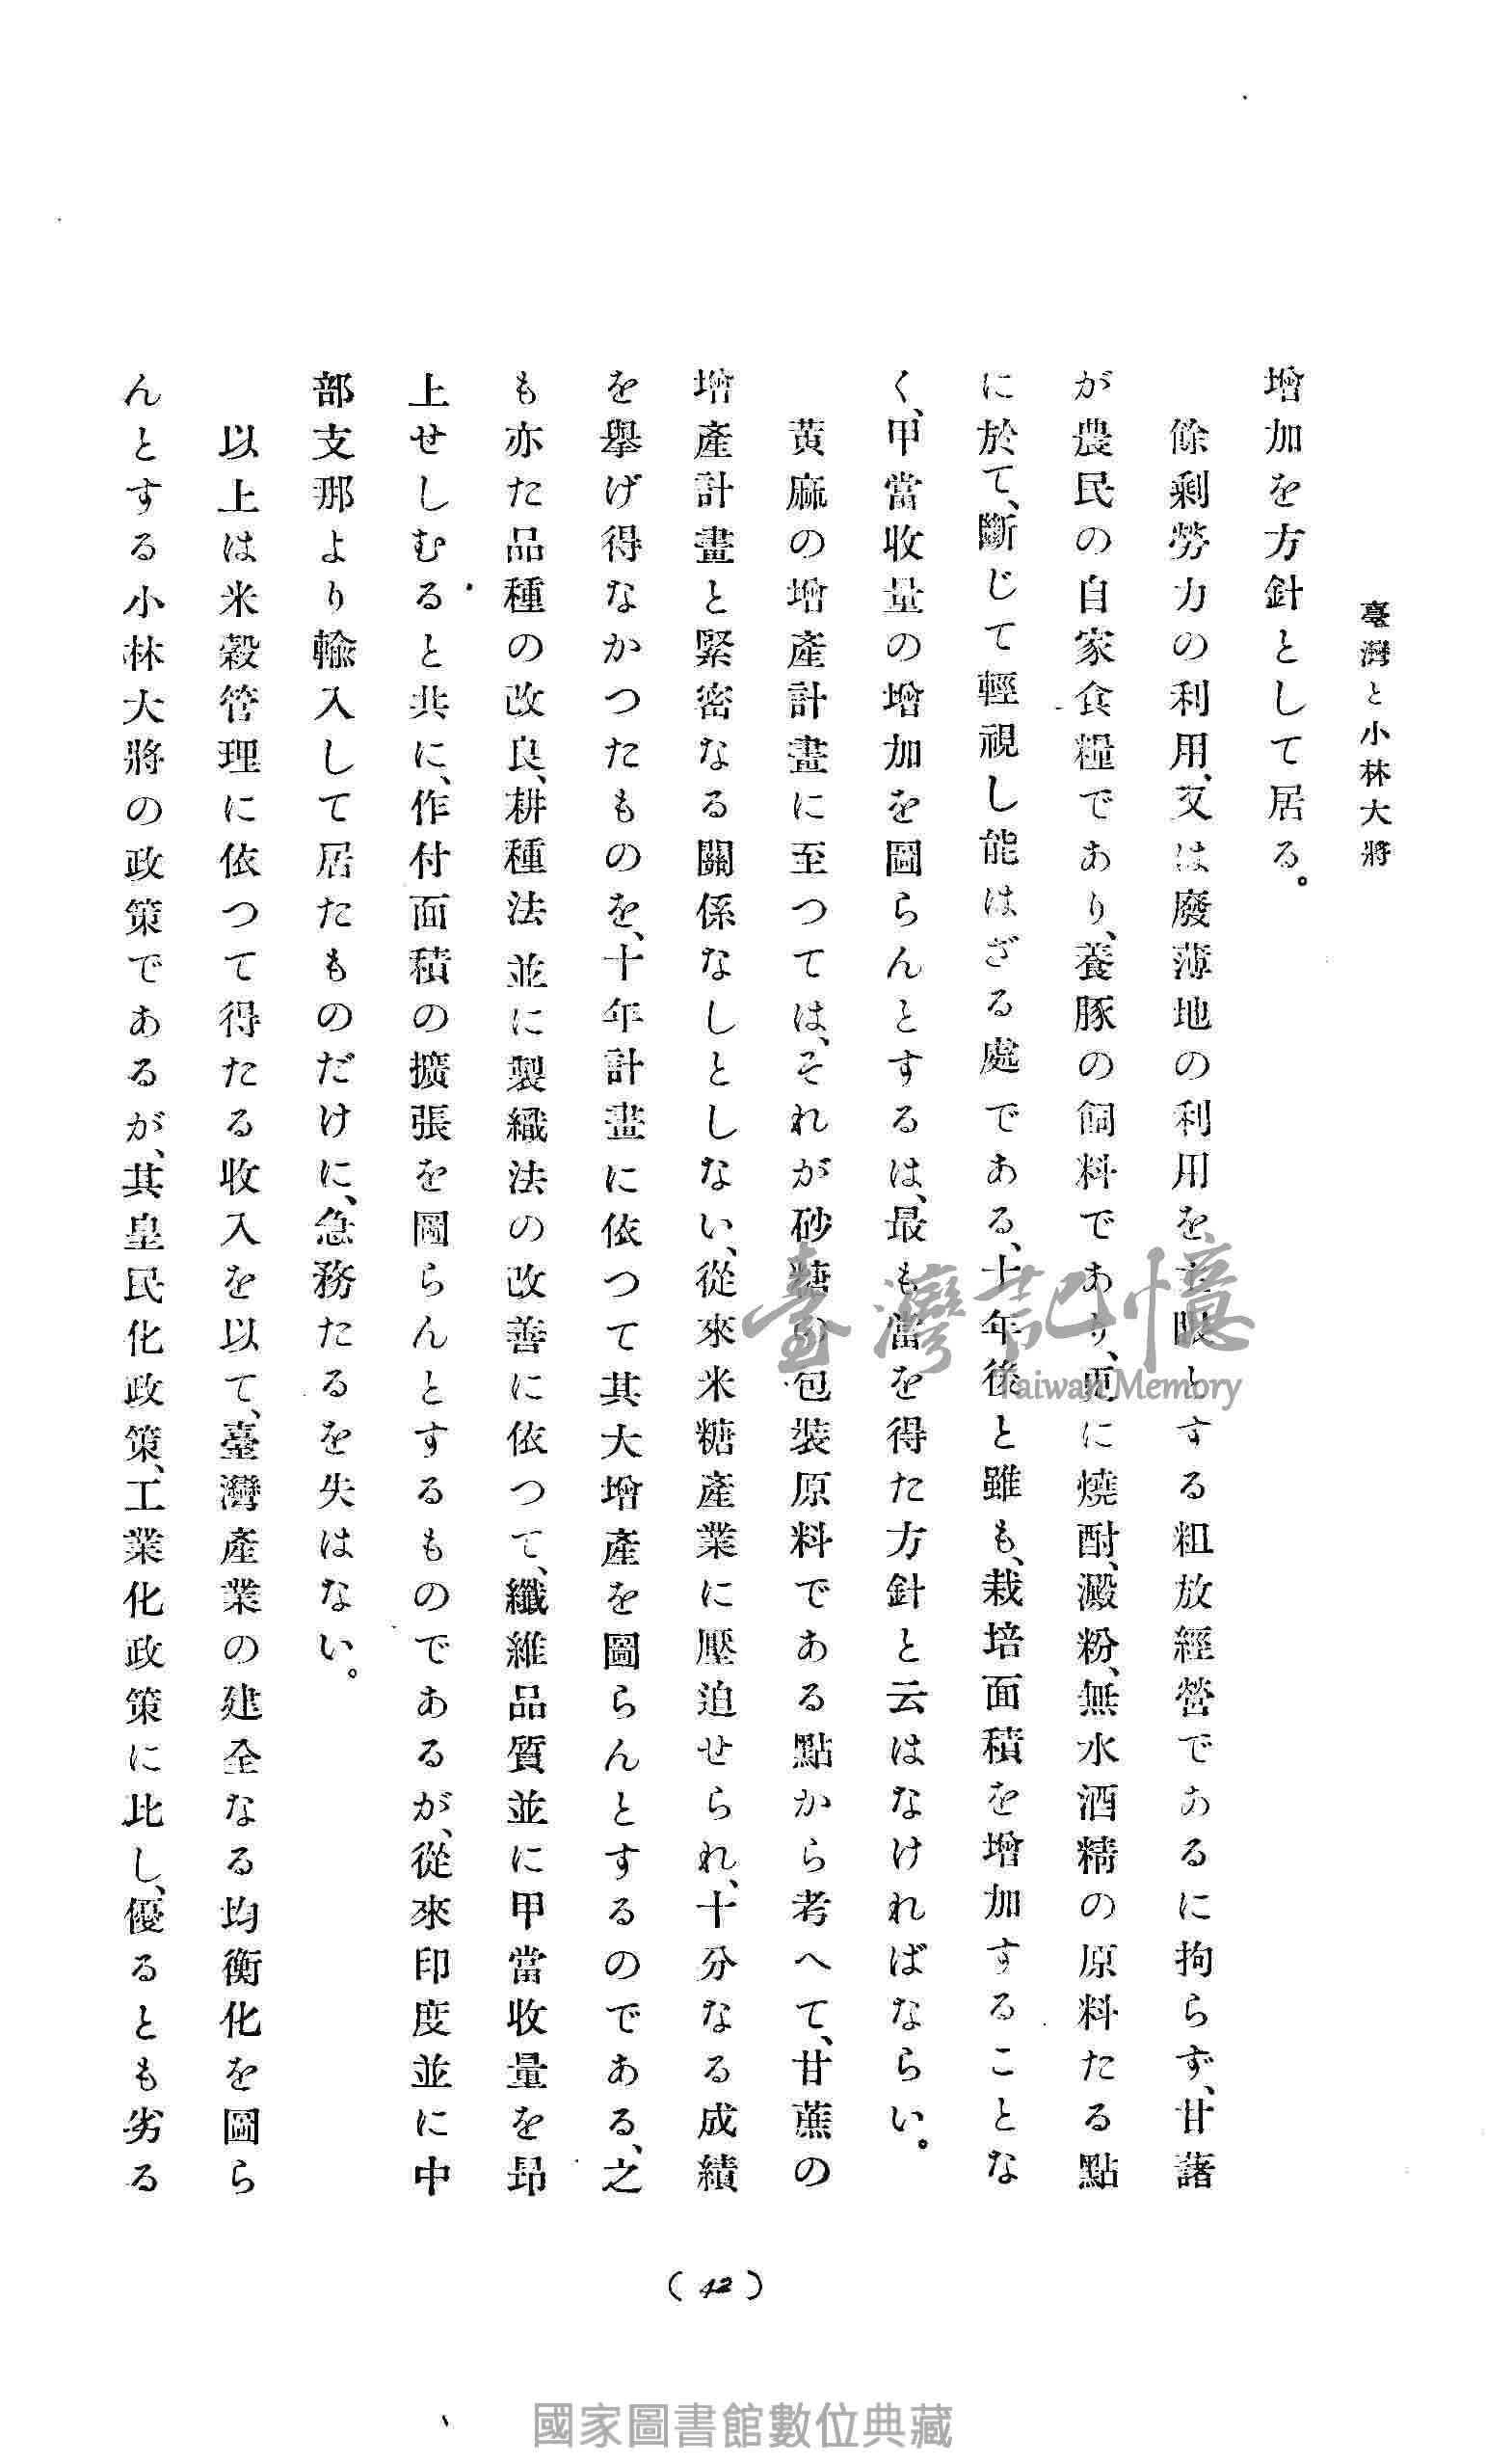 臺灣と小林大將
增加を方針として居る。
餘剩勞力の利用、又は廢薄地の利用を主眼とする粗放經營であるに拘らず、甘藷
が農民の自家食糧であり、養豚の飼料であり、更に燒酎、澱粉、無水酒精の原料たる點
に於て、斷じて輕視し能はざる處である、十年後と雖も、栽培面積を增加することな
く、甲當收量の增加を圖らんとするは、最も當を得た方針と云はなければならい。
黄麻の增產計畫に至つては、それが砂糖の包裝原料である點から考へて、甘蔗の
增產計畫と緊密なる關係なしとしない、從來米糖產業に壓迫せられ、十分なる成績
を擧げ得なかつたものを、十年計畫に依つて其大增產を圖らんとするのである、之
も亦た品種の改良、耕種法並に製織法の改善に依つて、纖維品質並に甲當收量を昻
上せしむると共に、作付面積の擴張を圖らんとするものであるが、從來印度並に中
部支那より輸入して居たものだけに、急務たるを失はない。
以上は米穀管理に依つて得たる收入を以て、臺灣產業の建全なる均衡化を圖ら
んとする小林大將の政策であるが、其皇民化政策、工業化政策に比し、優るとも劣る
(42)
臺灣記憶
Taiwan Memory
國家圖書館數位典藏